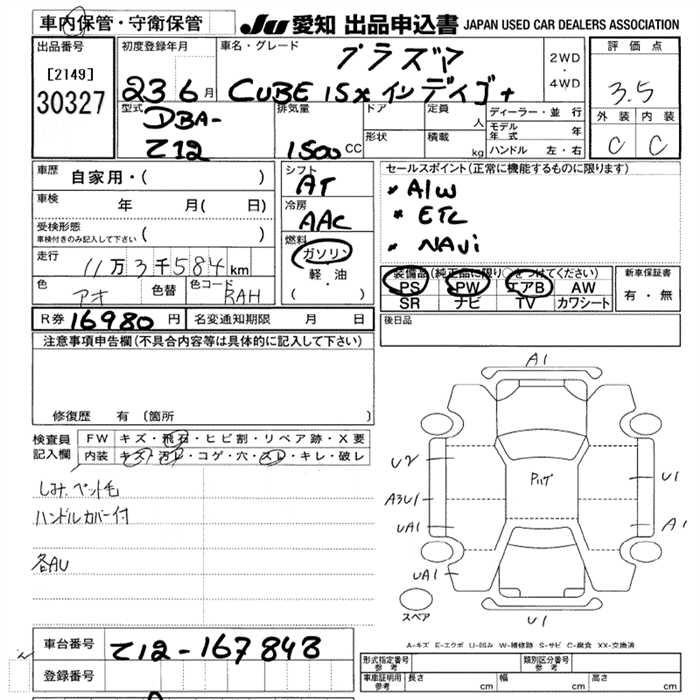 車内保管・守衛保管
JU 愛知 出品申込書 JAPAN USED CAR DEALERS ASSOCIATION
出品番号
[2149]
30327
初度登録年月
23 6 月
車名・グレード
プラズマ
CUBE 15X インディゴ+
2WD
・
4WD
評価点
3.5
外装 内装
C C
型式
DBA-
Z12
排気量
1500 CC
ドア
定員
人
形状
積載
kg
ディーラー・並行
モデル年式 年
ハンドル 左・右
車歴
自家用・( )
車検
年 月( 日)
受検形態
車検付きのみ記入して下さい ( )
走行
11万3千584km
色
アオ
色替
色コード
RAH
シフト
AT
冷房
AAC
燃料
ガソリン
軽・油
( )
セールスポイント(正常に機能するものに限ります)
* A/W
* ETC
* NAVi
装備品(純正品に限り○をつけてください)
PS PW エアB AW
SR ナビ TV カワシート
新車保証書
有・無
R券 16980 円 名変通知期限 月 日
後日品
注意事項申告欄(不具合内容等は具体的に記入して下さい)
修復歴 有 (箇所 )
検査員
記入欄
FW キズ・飛石・ヒビ割・リペア跡・X要
内装 キズ・汚レ・コゲ・穴・スレ・キレ・破レ
シミ、ペット毛
ハンドルカバー付
各AU
A1
U2
A3U1
UA1
UA1
U1
A1
U1
スペア
A-キズ E-エクボ U-凹み W-補修跡 S-サビ C-腐食 XX-交換済
車台番号 Z12-167848
登録番号
形式指定番号
参考
類別区分番号
参考
車庫証明用
参考
長さ cm 幅 cm 高さ cm